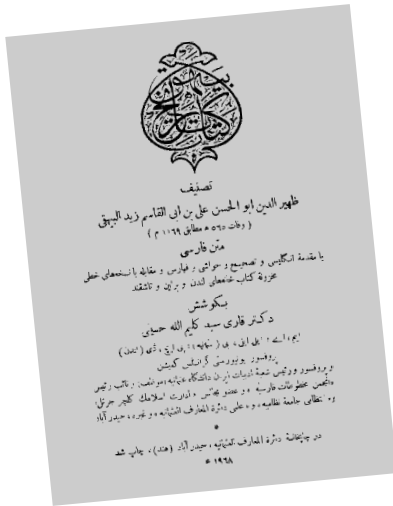 کتاب تاریخ بیهق
تصنیف
ظهیر الدین ابو الحسن علی بن ابی القاسم زید البیهقی
( وفات ۵۶۵ ه مطابق ۱۱۶۹ م )
متن فارسی
با مقدمة انگلیسی و تصحیح و حواشی و فهارس و مقابله با نسخه‌های خطی
مخزونۀ کتاب خانه‌های لندن و برلین و تاشقند
بکوشش
دکتر قاری سید کلیم الله حسینی
ایم، اے؛ ایل ایل، بی (عثمانیه)؛ پی ایچ، ڈی (لندن)
پروفسور یونیورسٹی گرانٹس کمیشن
و پروفسور و رئیس شعبۀ ادبیات ایران دانشگاه عثمانیه، موسس و نائب رئیس
انجمن مخطوطات فارسیه، و عضو مجلس ادارت اسلامک کلچر جرنل،
و انتظامی جامعۀ نظامیه، و علمی دائرة المعارف العثمانیه، و غیره، حیدر آباد
*
در چاپخانۀ دائرة المعارف العثمانیه، حیدر آباد (هند)، چاپ شد
۱۹۶۸ ء